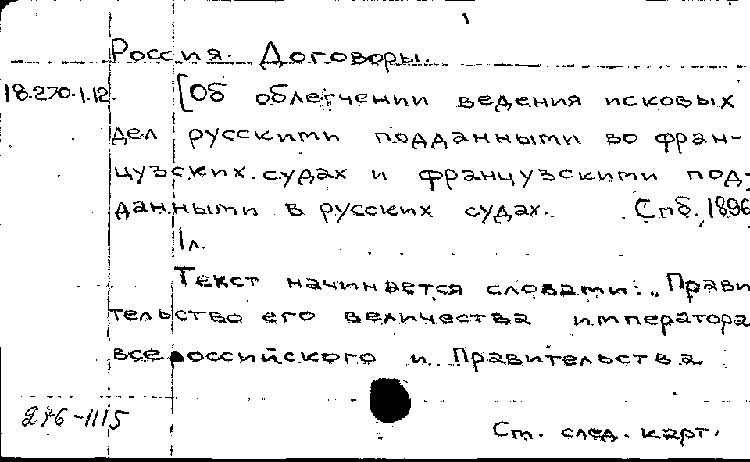 1
Россия. Договоры.
18.270.1.12. [Об облегчении ведения исковых
дел русскими подданными во фран-
цузских судах и французскими под-
данными в русских судах. Спб. 1896
1л.
Текст начинается словами: „Прави
тельство его величества императора
всероссийского и Правительства
276-1115
См. след. карт.